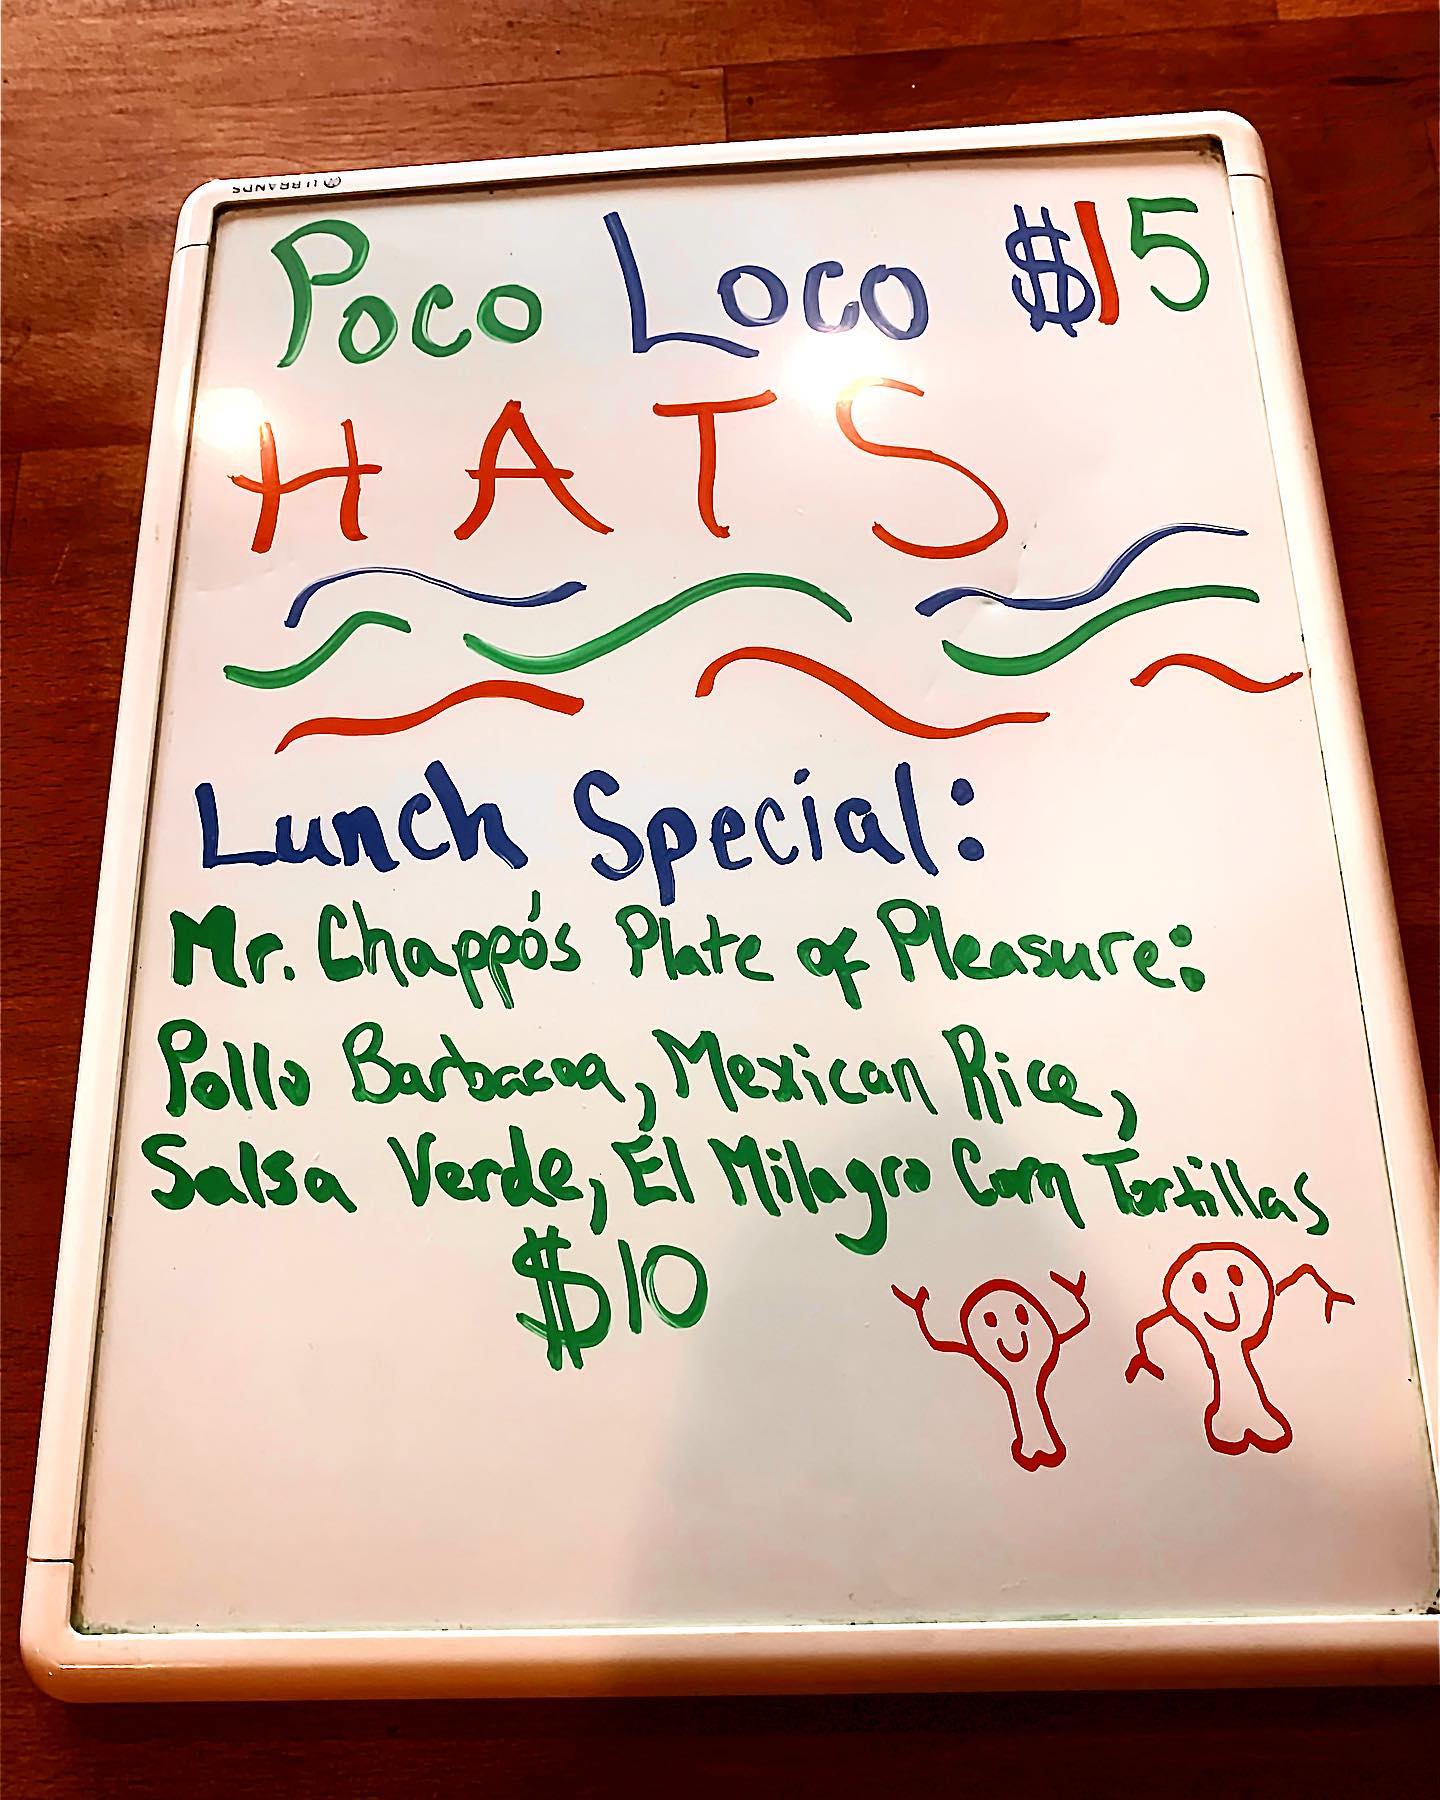 U BRANDS
Poco Loco $15
HATS
Lunch Special:
Mr. Chappó's Plate of Pleasure:
Pollo Barbacoa, Mexican Rice,
Salsa Verde, El Milagro Corn Tortillas
$10